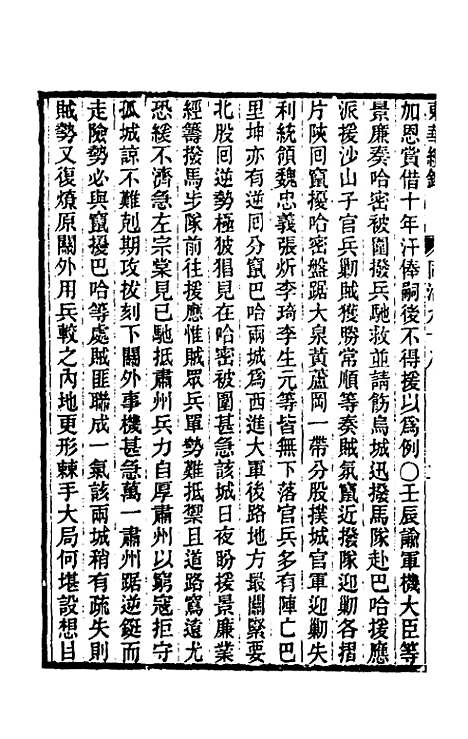 加恩賞借十年汗俸嗣後不得援以爲例○壬辰諭軍機大臣等
景廉奏哈密被圍撥兵馳救並請飭烏城迅撥馬隊赴巴哈援應
派援沙山子官兵勦賊獲勝常順等奏賊氛竄近撥隊迎勦各摺
片陝回竄擾哈密盤踞大泉黃蘆岡一帶分股撲城官軍迎勦失
利統領魏忠義張炘李琦李生元等皆無下落官兵多有陣亡巴
里坤亦有逆回分竄巴哈兩城爲西進大軍後路地方最關緊要
北股回逆勢極狓猖見在哈密被圍甚急該城日夜盼援景廉業
經籌撥馬步隊前往援應惟賊眾兵單勢難抵禦且道路窵遠尤
恐緩不濟急左宗棠見已馳抵肅州兵力自厚肅州以窮寇拒守
孤城諒不難剋期攻拔刻下關外事機甚急萬一肅州踞逆鋌而
走險勢必與竄擾巴哈等處賊匪聯成一氣該兩城稍有疏失則
賊勢又復燎原關外用兵較之內地更形棘手大局何堪設想目